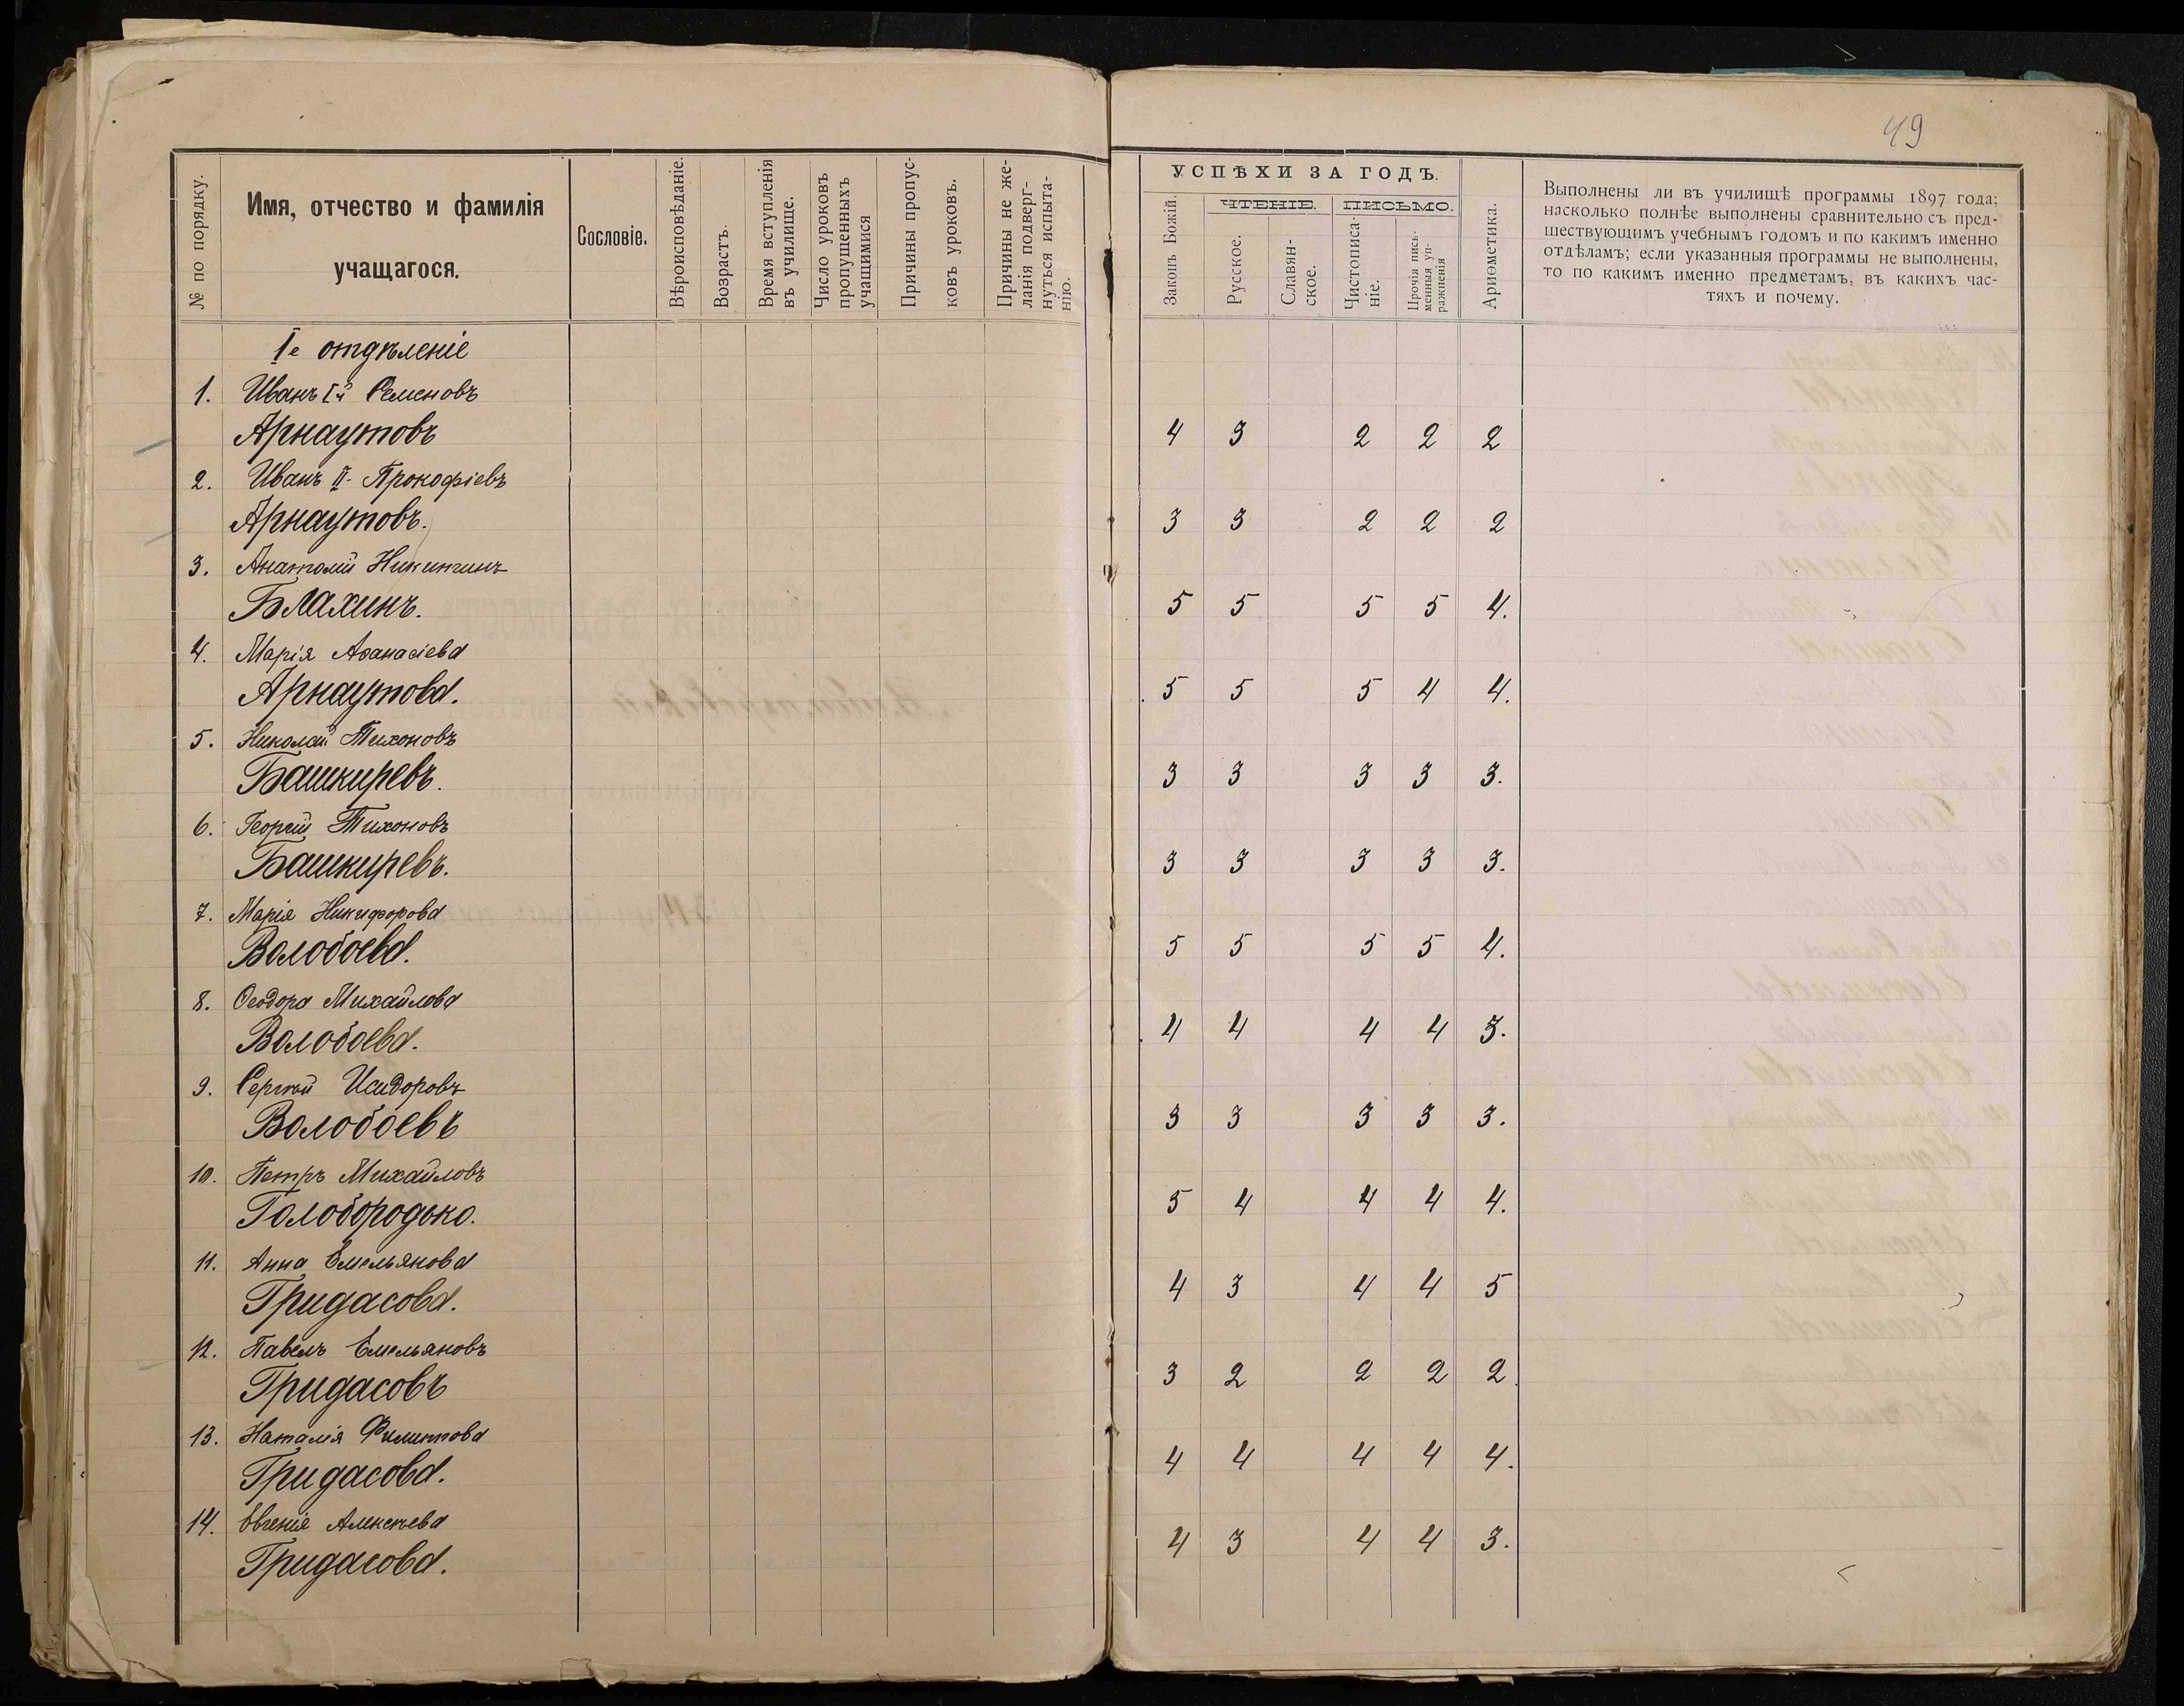 49
№ по порядку.
Имя, отчество и фамилія
учащагося.
Сословіе.
Вѣроисповѣданіе.
Возрастъ.
Время вступленія
въ училище.
Число уроковъ
пропущенныхъ
учащимися
Причины пропус-
ковъ уроковъ.
Причины не же-
ланія подверг-
нуться испыта-
нію.
УСПѢХИ ЗА ГОДЪ.
Законъ Божій.
ЧТЕНІЕ.
Русское.
Славян-
ское.
ПИСЬМО.
Чистописа-
ніе.
Прочія пись-
менныя уп-
ражненія
Ариѳметика.
Выполнены ли въ училищѣ программы 1897 года;
насколько полнѣе выполнены сравнительно съ пред-
шествующимъ учебнымъ годомъ и по какимъ именно
отдѣламъ; если указанныя программы не выполнены,
то по какимъ именно предметамъ, въ какихъ час-
тяхъ и почему.
Iе отдѣленіе
1. Иванъ Iй Семеновъ
Арнаутовъ 4 3 2 2 2
2. Иванъ II- Прокофіевъ
Арнаутовъ. 3 3 2 2 2
3. Анатолій Никитинъ
Блахинъ. 5 5 5 5 4.
4. Марія Аѳанасіева
Арнаутова. 5 5 5 4 4.
5. Николай Тихоновъ
Башкиревъ. 3 3 3 3 3.
6. Георгій Тихоновъ
Башкиревъ. 3 3 3 3 3.
7. Марія Никифорова
Волобоева. 5 5 5 5 4.
8. Ѳеодора Михайлова
Волобоева. 4 4 4 4 3.
9. Сергѣй Исидоровъ
Волобоевъ 3 3 3 3 3.
10. Петръ Михайловъ
Голобородько. 5 4 4 4 4.
11. Анна Емельянова
Гридасова. 4 3 4 4 5
12. Павелъ Емельяновъ
Гридасовъ 3 2 2 2 2
13. Наталія Филиппова
Гридасова. 4 4 4 4 4.
14. Евгенія Алексѣева
Гридасова. 4 3 4 4 3.